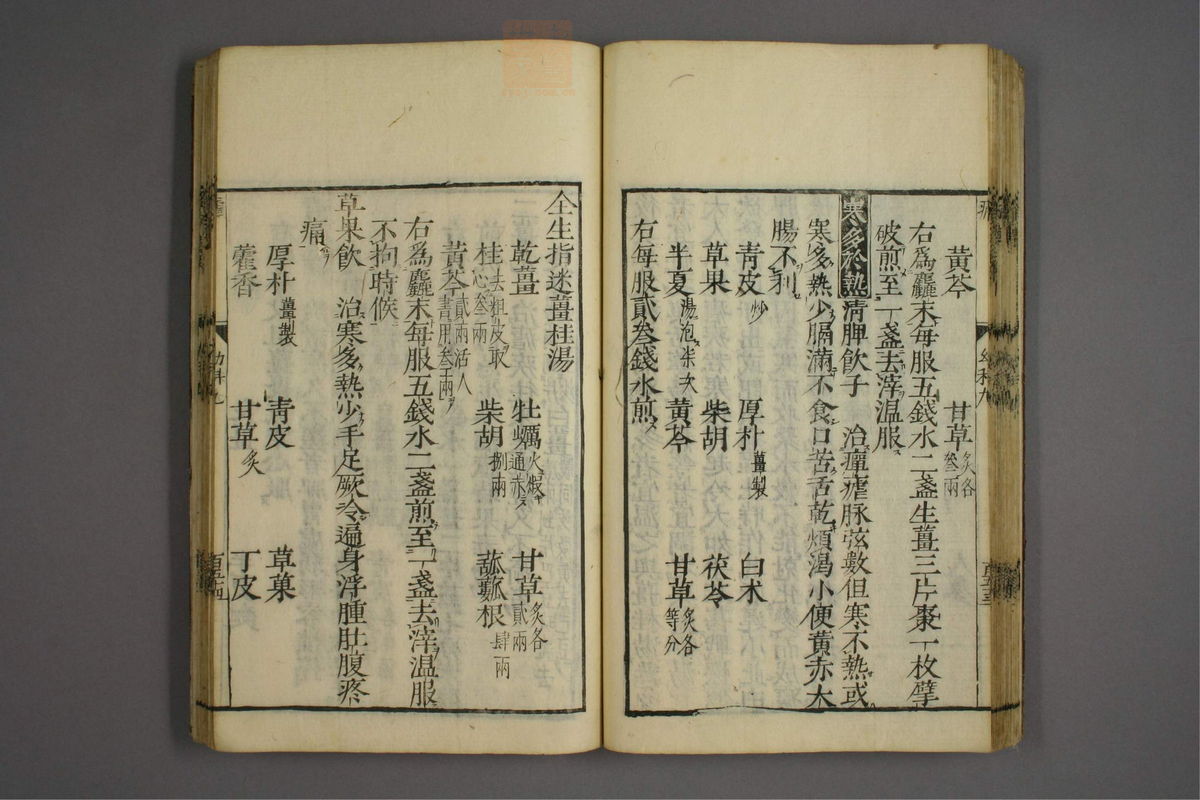 黃芩　甘草炙各叄兩
右爲麤末每服五錢水二盞生薑三片棗一枚擘
破煎至一盞去滓温服
寒多於熱清脾飲子　治癉瘧脉弦數但寒不熱或
寒多熱少膈滿不食口苦舌乾煩渴小便黃赤大
腸不利
青皮炒　厚朴薑製　白术
草果　柴胡　茯苓
半夏湯泡柒次　黃芩　甘草炙各等分
右每服貳叄錢水煎
全生指迷薑桂湯
乾薑　牡蠣火煅通赤　甘草炙各貳兩
桂去粗皮取心叄兩　柴胡捌兩　蓏蔞根肆兩
黃芩貳兩活人書用叄兩
右爲麤末每服五錢水二盞煎至一盞去滓温服
不拘時候
草果飲　治寒多熱少手足厥冷遍身浮腫肚腹疼
痛
厚朴薑製　青皮　草菓
藿香　甘草炙　丁皮